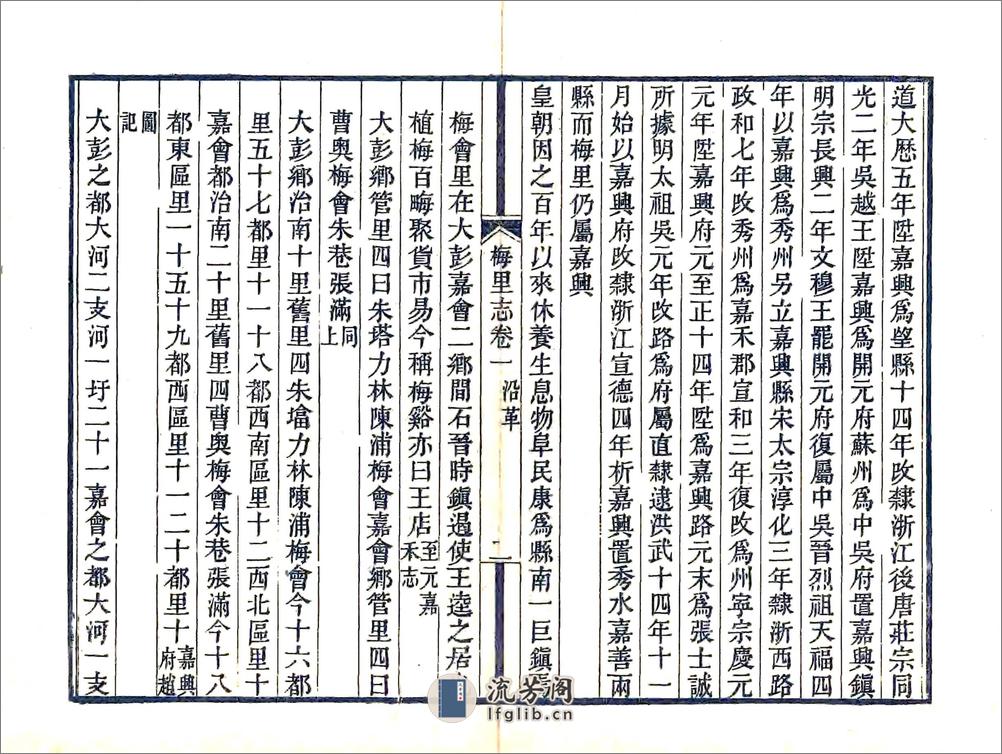 道大歷五年陞嘉興爲望縣十四年改隸浙江後唐莊宗同
光二年吳越王陞嘉興爲開元府蘇州爲中吳府置嘉興鎮
明宗長興二年文穆王罷開元府復屬中吳晉烈祖天福四
年以嘉興爲秀州另立嘉興縣宋太宗淳化三年隸浙西路
政和七年改秀州爲嘉禾郡宣和三年復改爲州寧宗慶元
元年陞嘉興府元至正十四年陞爲嘉興路元末爲張士誠
所據明太祖吳元年改路爲府屬直隸逮洪武十四年十一
月始以嘉興府改隸浙江宣德四年析嘉興置秀水嘉善兩
縣而梅里仍屬嘉興
皇朝因之百年以來休養生息物阜民康爲縣南一巨鎮
梅里志卷一 沿革 二
梅會里在大彭嘉會二鄉間石晉時鎮遏使王逵之居
植梅百畮聚貨市易今稱梅谿亦曰王店至元嘉禾志
大彭鄉管里四曰朱塔力林陳浦梅會嘉會鄉管里四曰
曹奧梅會朱巷張滿同上
大彭鄉治南十里舊里四朱墖力林陳浦梅會今十六都
里五十七都里十一十八都西南區里十二西北區里十
嘉會都治南二十里舊里四曹奧梅會朱巷張滿今十八
都東區里一十五十九都西區里十一二十都里十嘉興府趙
圖記
大彭之都大河二支河一圩二十一嘉會之都大河一支
流芳阁
lfglib.cn